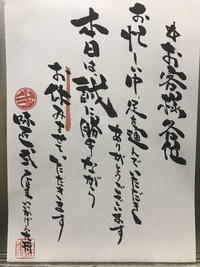 お客様各位
お忙しい中足を運んでいただき
ありがとうございます
本日は誠に勝手ながら
お休みさせていただきます